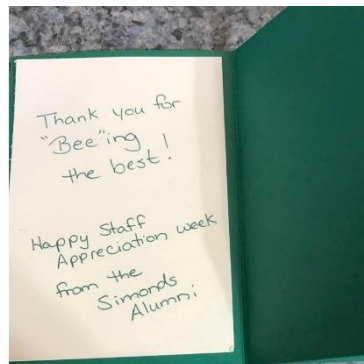 Thank you for
"Bee"ing
the best!
Happy Staff
Appreciation week
from the
Simonds
Alumni